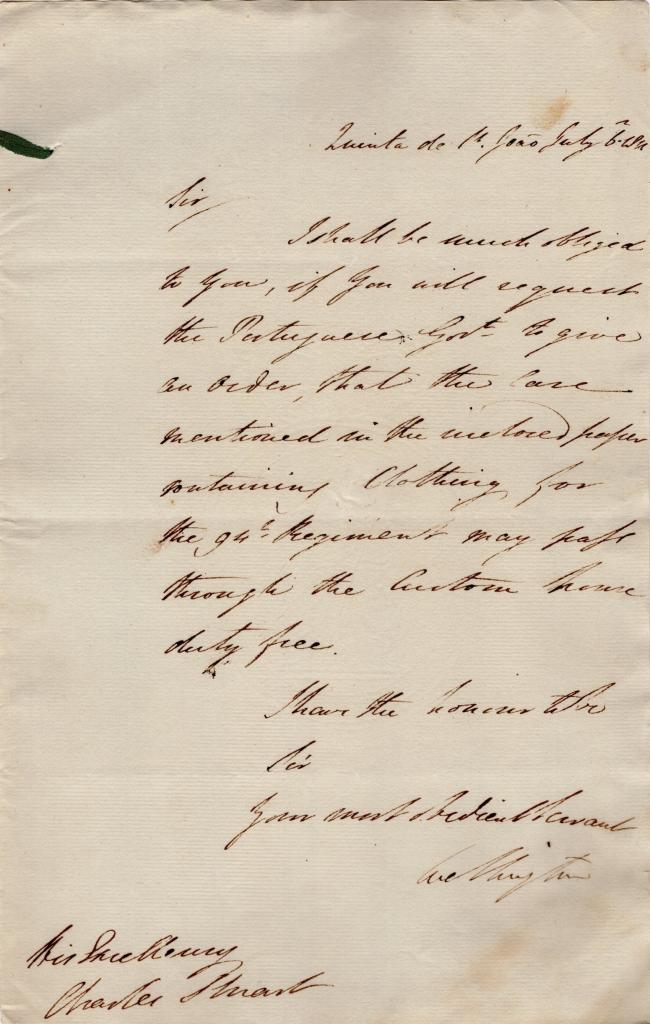 Quinta de St. João July 6th 1811
Sir
I shall be much obliged
to You, if You will request
the Portuguese Govt. to give
an order, that the Case
mentioned in the inclosed paper
containing Clothing for
the 94th. Regiment may pass
through the Custom house
duty free.
I have the honour to be
Sir
Your most obedient Servant
Wellington
His Excellency
Charles Stuart